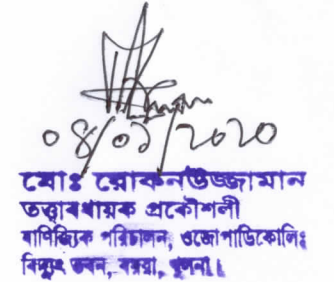 ০৪/০১/২০২০
মোঃ রোকনউজ্জামান
তত্ত্বাবধায়ক প্রকৌশলী
বাণিজ্যিক পরিচালন, ওজোপাডিকোলিঃ
বিদ্যুৎ ভবন, বয়রা, খুলনা।